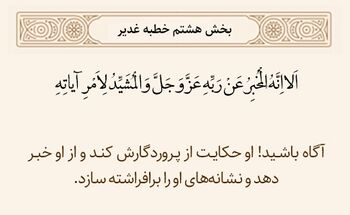 بخش هشتم خطبه غدیر
اَلا اِنَّهُ الْمُخْبِرُ عَنْ رَبِّهِ عَزَّ وَ جَلَّ وَ الْمُشَیِّدُ لِاَمْرِ آیاتِهِ
آگاه باشید! او حکایت از پروردگارش کند و از او خبر
دهد و نشانه‌های او را برافراشته سازد.